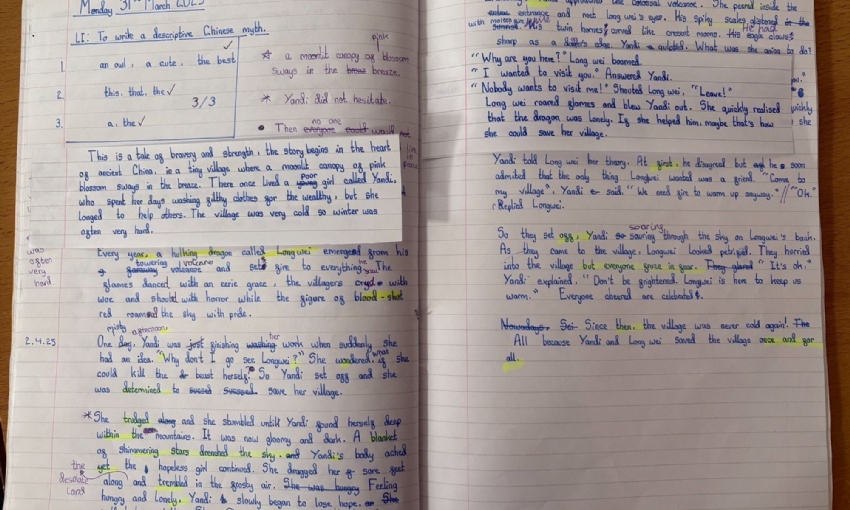 Monday 31st March 2025
LI: To write a descriptive Chinese myth.
1. an owl, a cute, the best
2. this, that, the
3/3
3. a, the
pink
* a moonlit canopy of blossom
sways in the breeze.
* Yandi did not hesitate.
no one
• Then everyone could would not
live in
This is a tale of bravery and strength, the story begins in the heart
of ancient China, in a tiny village where a moonlit canopy of pink
blossom sways in the breeze. There once lived a
Poor
young girl called Yandi,
who spent her days washing filthy clothes for the wealthy, but she
longed to help others. The village was very cold so winter was
often very hard.
was
often
very
hard
Every year, a hulking dragon called Longwei emerged from his
towering volcano
volcano and set fire to everything. The
flames danced with an eerie grace, the villagers cryd with
woe and shook with horror while the figure of blood-shot
red roamed the sky with pride.
misty afternoon
2.4.25
One day, Yandi was just finishing washing
her
work when suddenly she
had an idea. "Why don't I go see Longwei?" She wondered if she
could kill the beast herself. So Yandi set off and she
was determined to save her village.
*She trudged along and she stumbled untill Yandi found herself deep
within the mountains. It was now gloomy and dark. A blanket
of shimmering stars drenched the sky. and Yandi's body ached
yet the hopeless girl continued. She dragged her sore feet
the
desolate
land
along and trembled in the frosty air. She was hungry Feeling
hungry and lonely, Yandi slowly began to lose hope. She
approached the colossal volcano. She peered inside the
entrance and met Long wei's eyes. His spiky scales glistened in the
with molten
His twin horns curved like cresent moons. His eagle claws
He had
sharp as a edge. Yandi gulped. What was she going to do?
"Why are you here?" Long wei boomed.
"I wanted to visit you." Answered Yandi.
"Nobody wants to visit me!" Shouted Long wei, "Leave!"
Long wei roared flames and blew Yandi out. She quickly realised
that the dragon was lonely. If she helped him, maybe that's how
she could save her village.
Yandi told Long wei her theory. At first, he disagreed but he soon
admited that the only thing Longwei wanted was a friend. "Come to
my village". Yandi said. "We need fire to warm up anyway." // "Ok."
Replied Longwei.
soaring
So they set off, Yandi so sauring through the sky on Longwei's back.
As they came to the village, Longwei looked petrified. They horried
into the village but everyone froze in fear. They glared "It's oh."
Yandi explained, "Don't be frightened. Longwei is here to keep us
warm." Everyone cheered are celebrated.
Nowadays. Sei Since then, the village was never cold again! The
All because Yandi and Long wei saved the village once and for
all.